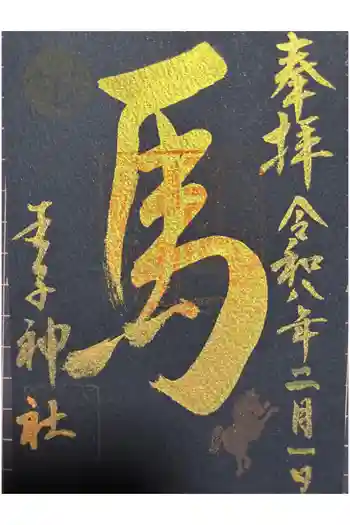 奉拝 令和八年二月一日
馬
王子神社